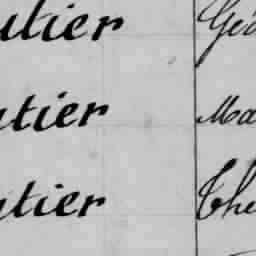 utier Geo
utier Ma
utier The